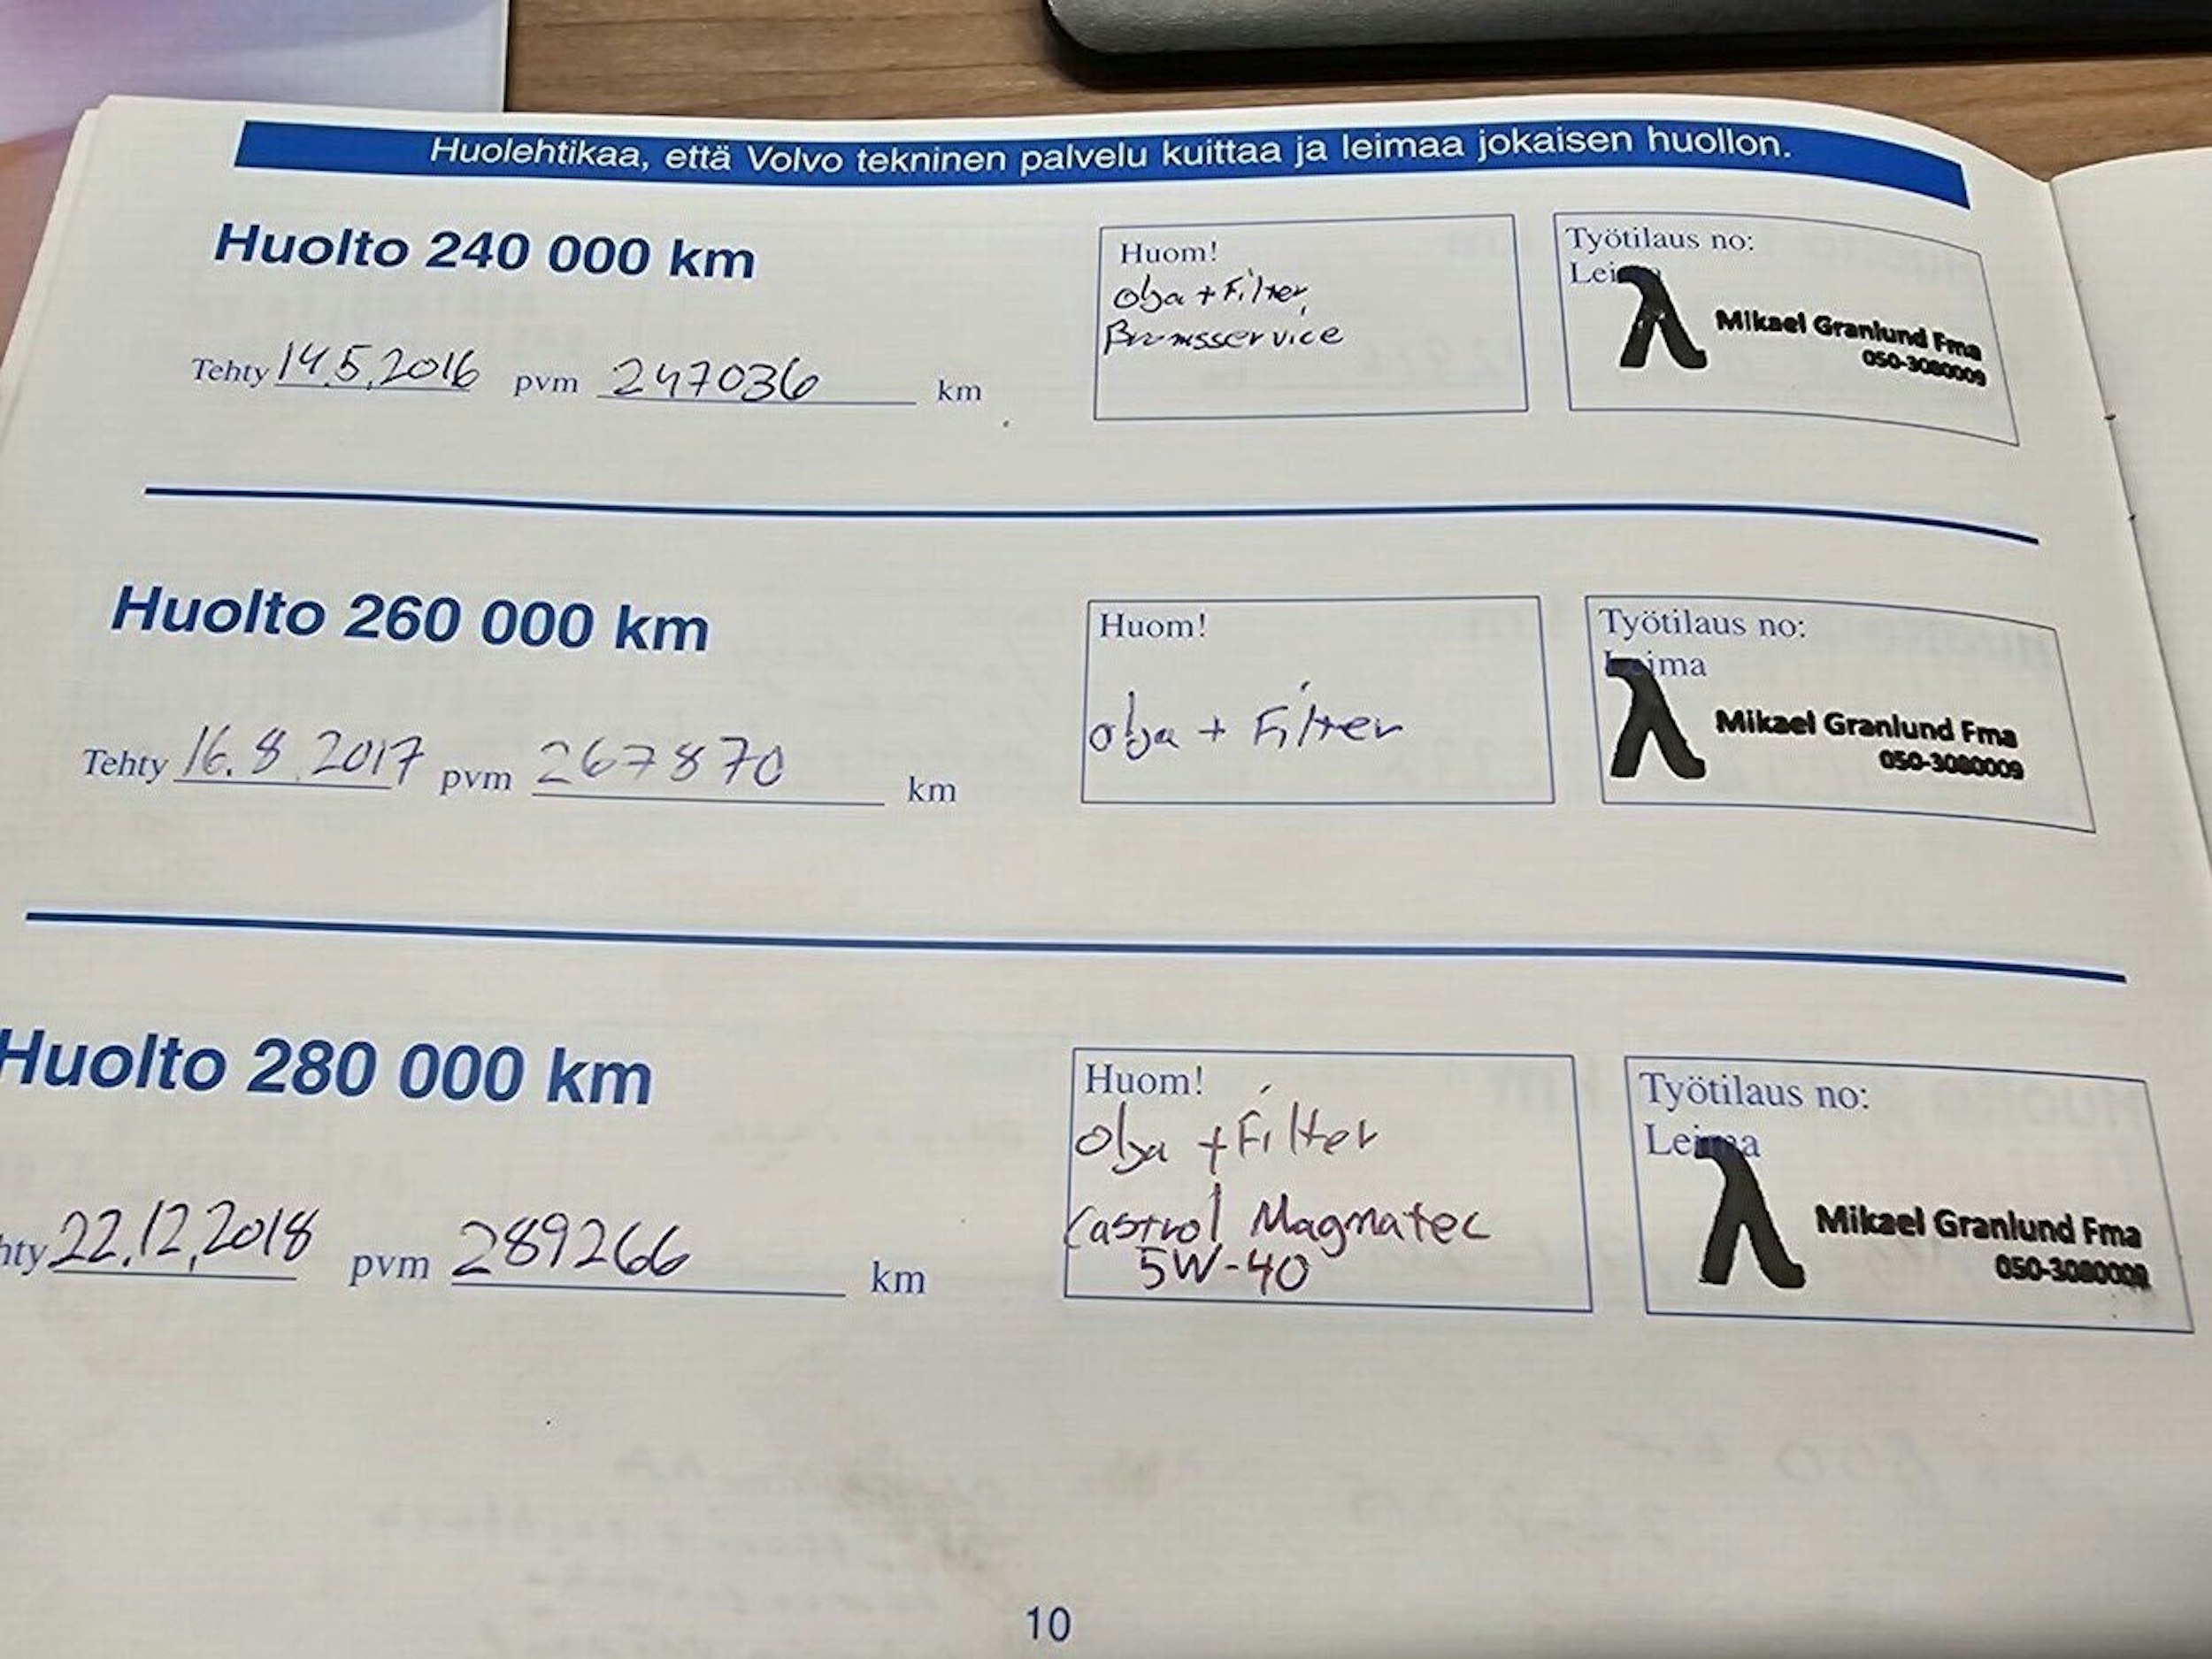 Huolehtikaa, että Volvo tekninen palvelu kuittaa ja leimaa jokaisen huollon.
Huolto 240 000 km
Tehty 14.5.2016 pvm 247036 km
Huom!
Olja + Filter,
Bromsservice
Työtilaus no:
Leima
Mikael Granlund Fma
050-3080009
Huolto 260 000 km
Tehty 16.8.2017 pvm 267870 km
Huom!
olja + Filter
Työtilaus no:
Leima
Mikael Granlund Fma
050-3080009
Huolto 280 000 km
hty 22.12.2018 pvm 289266 km
Huom!
Olja + Filter
Castrol Magnatec
5W-40
Työtilaus no:
Leima
Mikael Granlund Fma
050-3080009
10